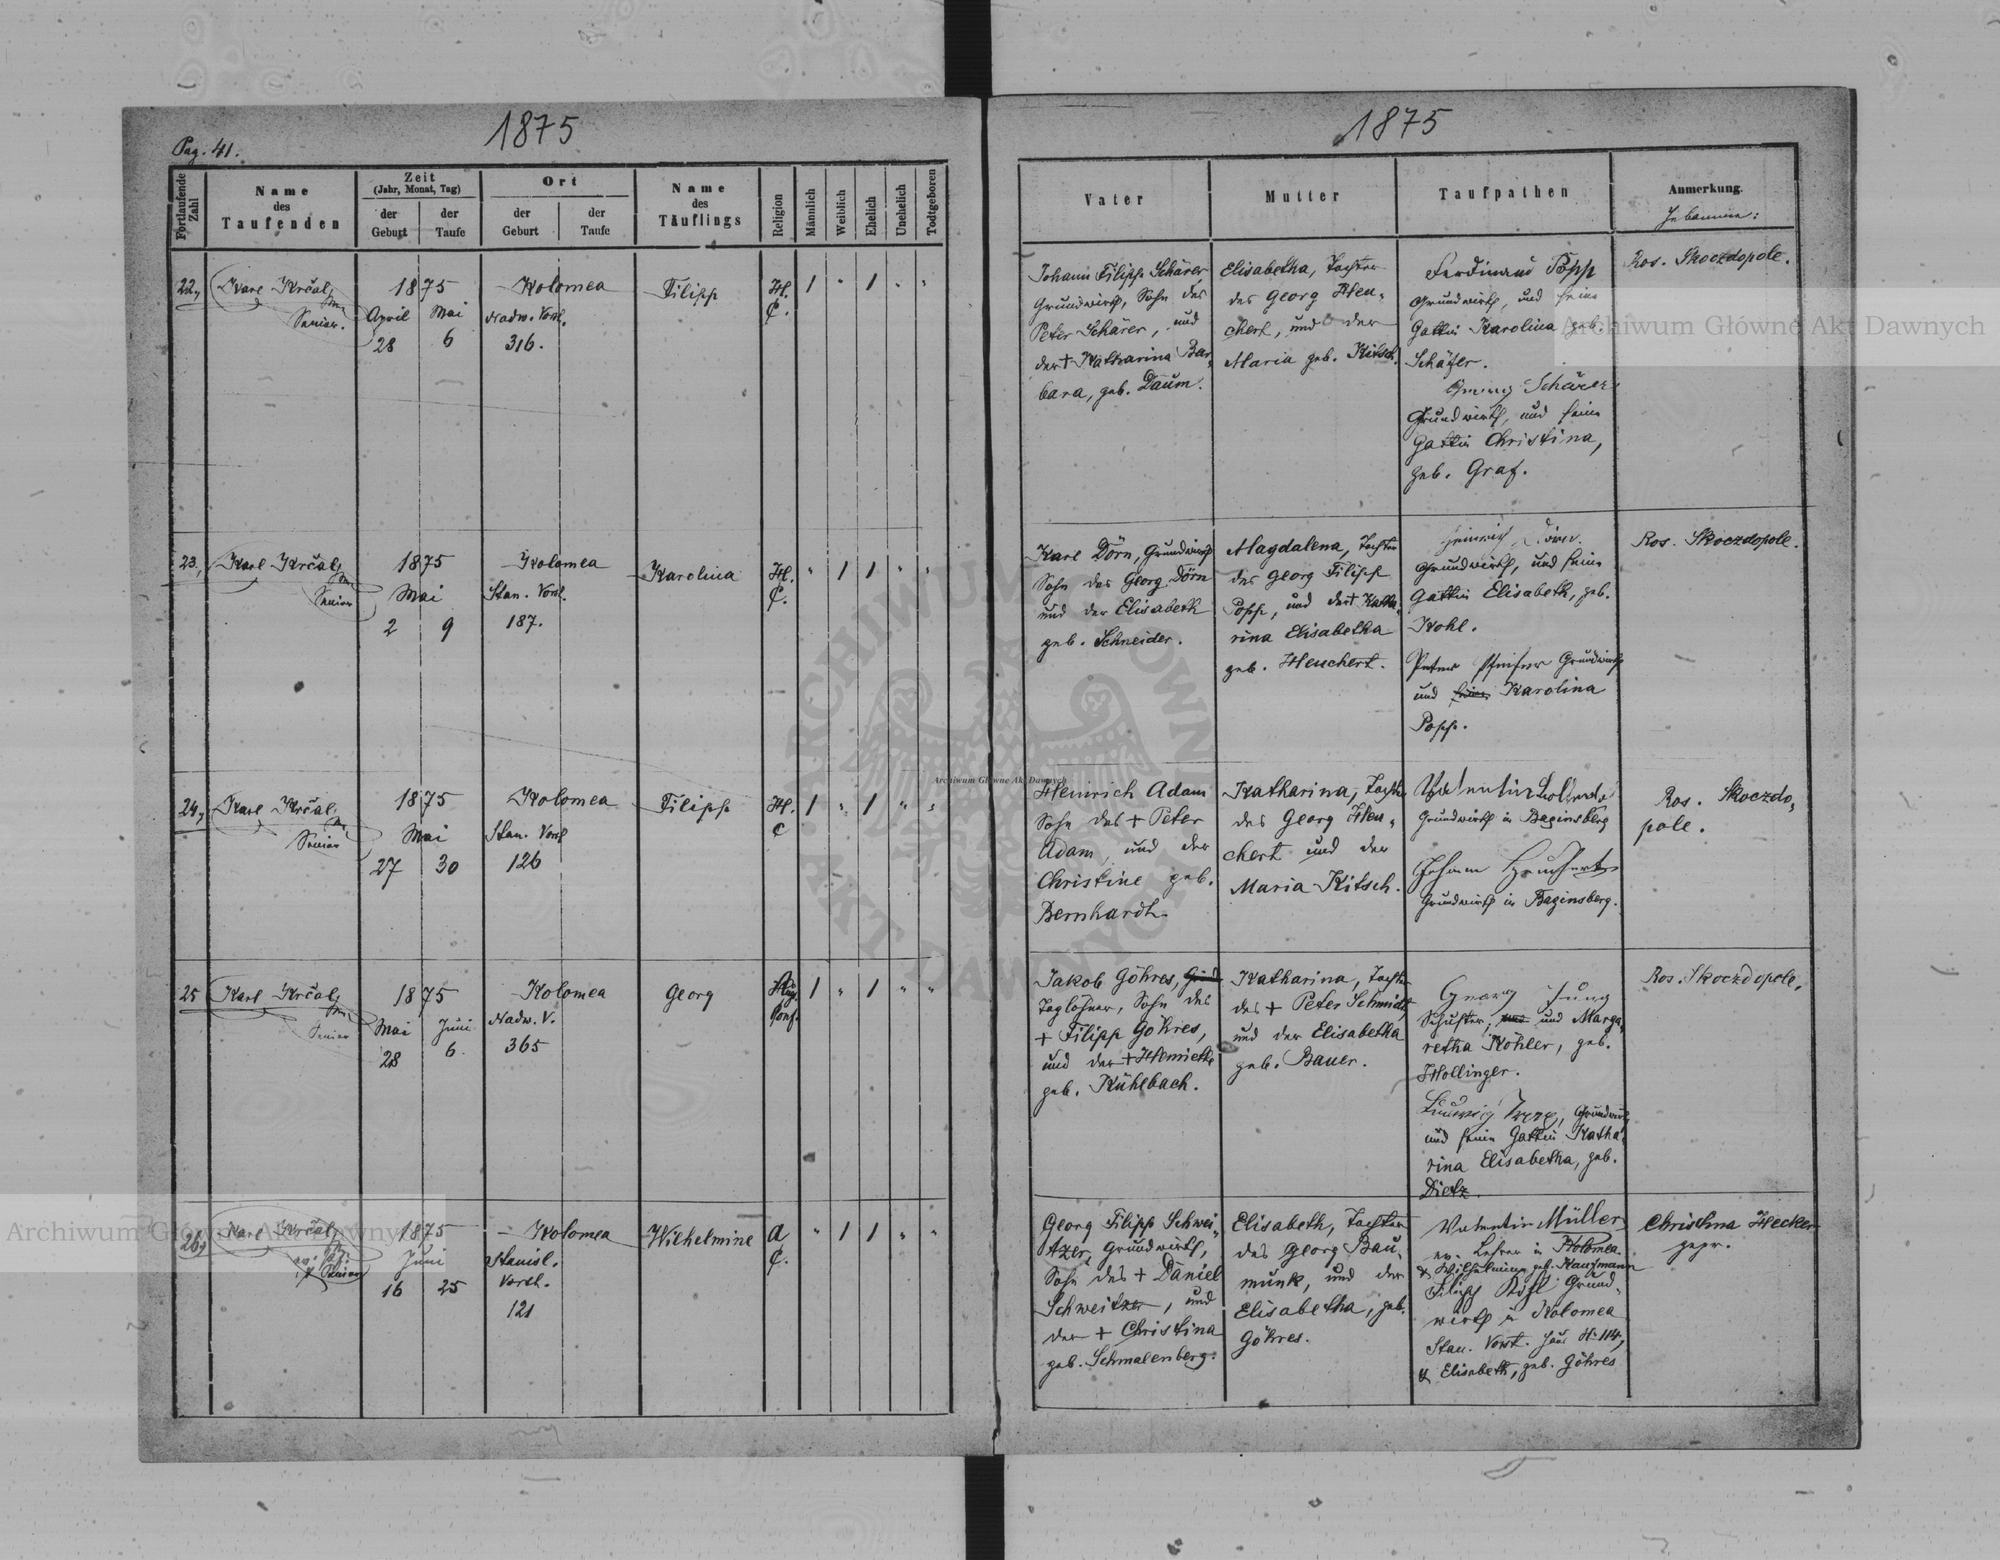 1875
Pag. 41.
Fortlaufende Zahl
Name
des
Taufenden
Zeit
(Jahr, Monat, Tag)
der
Geburt
der
Taufe
Ort
der
Geburt
der
Taufe
Name
des
Täuflings
Religion
Männlich
Weiblich
Ehelich
Unehelich
Todtgeboren
22,
Karl Krčal,
Senior.
1875
April Mai
28 6
Kolomea
Nadw. Vorst.
316.
Filipp
H.
C.
1 " 1 " "
23,
Karl Krčal,
Senior
1875
Mai
2 9
Kolomea
Stan. Vorst.
187.
Karolina
H.
C.
" 1 1 " "
24,
Karl Krčal,
Senior
1875
Mai
27 30
Kolomea
Stan. Vorst
126
Filipp
H.
C
1 " 1 " "
25
Karl Krčal,
Senior
1875
Mai Juni
28 6.
Kolomea
Nadw. V.
365
Georg
Aug.
Conf.
1 " 1 " "
26,
Karl Krčal,
Senior
1875
Juni
16 25
Kolomea
Stanisl.
Vorst.
121
Wilhelmine
A
C.
" 1 1 " "
1875
Vater
Mutter
Taufpathen
Anmerkung.
Hebamme:
Johann Filipp Schärer,
Grundwirth, Sohn des
Peter Schärer, und
der † Katharina Bar-
bara, geb. Daum.
Elisabetha, Tochter
des Georg Heu-
chert, und der
Maria geb. Kitsch.
Ferdinand Popp
Grundwirth, und seine
Gattin Karolina geb.
Schäfer.
Georg Schärer
Grundwirth, und seine
Gattin Christina,
geb. Graf.
Ros. Skoczdopole.
Karl Dörn, Grundwirth
Sohn des Georg Dörn
und der Elisabeth
geb. Schneider.
Magdalena, Tochter
des Georg Filipp
Popp, und der † Katha
rina Elisabetha
geb. Heuchert.
Heinrich Dörn.
Grundwirth, und seine
Gattin Elisabeth, geb.
Kohl.
Peter Pfeifer Grundwirth
und seine Karolina
Popp.
Ros. Skoczdopole.
Heinrich Adam
Sohn des † Peter
Adam, und der
Christine geb.
Bernhardt.
Katharina, Tochter
des Georg Heu-
chert und der
Maria Kitsch.
Valentin
Grundwirth in Baginsberg
Johann Heuchert
Grundwirth in Baginsberg.
Ros. Skoczdo-
pole.
Jakob Göhres, Grund
Taglöhner, Sohn des
† Filipp Göhres,
und der † Henriette
geb. Kühlbach.
Katharina, Tochter
des † Peter Schmidt,
und der Elisabetha
geb. Bauer.
Georg Jung
Schuster, und Marga-
retha Köhler, geb.
Hollinger.
Ludwig Grundwirth
und seine Gattin Katha-
rina Elisabetha, geb.
Dietz.
Ros. Skoczdopole.
Georg Filipp Schwei-
tzer, Grundwirth,
Sohn des † Daniel
Schweitzer, und
der † Christina
geb. Schmalenberg.
Elisabeth, Tochter
des Georg Bau-
munk, und der
Elisabetha, geb.
Göhres.
Valentin Müller
ev. Lehrer in Kolomea.
& Wilhelmine geb. Kaufmann
Filipp Grund-
wirth in Kolomea
Stan. Vorst. Haus N. 114,
& Elisabeth, geb. Göhres
Christina Hecker
gepr.
Archiwum Główne Akt Dawnych
Archiwum Główne Akt Dawnych
Archiwum Główne Akt Dawnych
ARCHIWUM GŁÓWNE AKT DAWNYCH